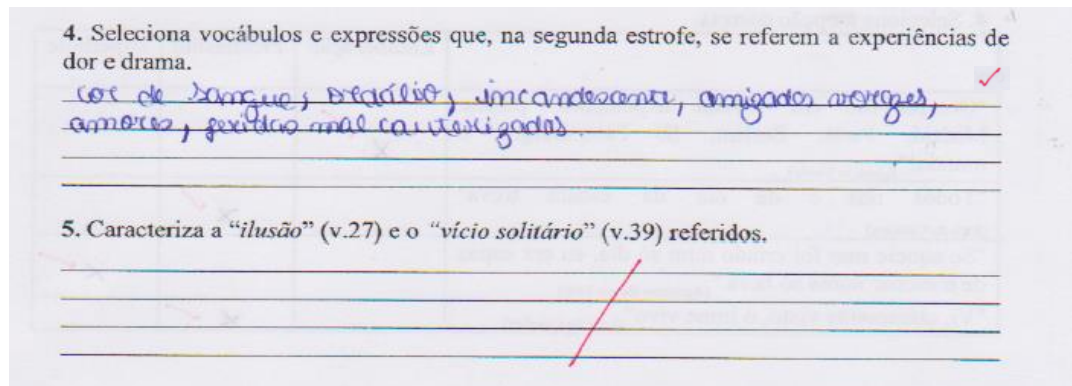 4. Seleciona vocábulos e expressões que, na segunda estrofe, se referem a experiências de
dor e drama.
cor de sangue, incandescente, amores,
mal cauterizadas.
5. Caracteriza a “ilusão” (v.27) e o “vício solitário” (v.39) referidos.